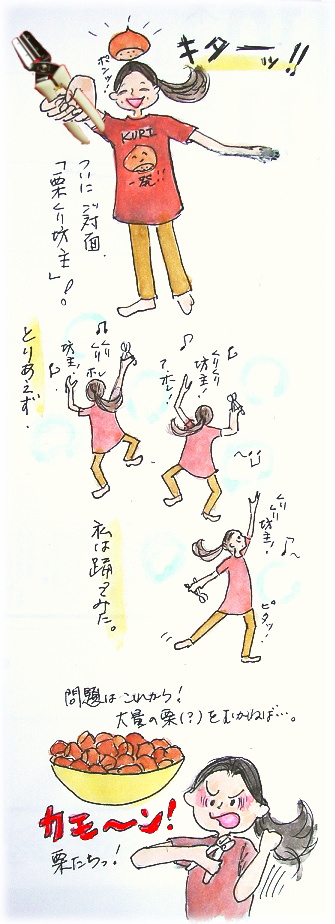 キターッ!!
ポンッ!
KURI
一発!!
ついにご対面.
「栗くり坊主」!。
とりあえず.
くりくり
坊主!
ホレ
くりくり
坊主!
ア、ホレ!
くりくり
坊主!
ピタッ!
私は踊ってみた。
問題はこれから!
大量の栗(?)をむかねば…。
カモ〜ン!
栗たちっ!